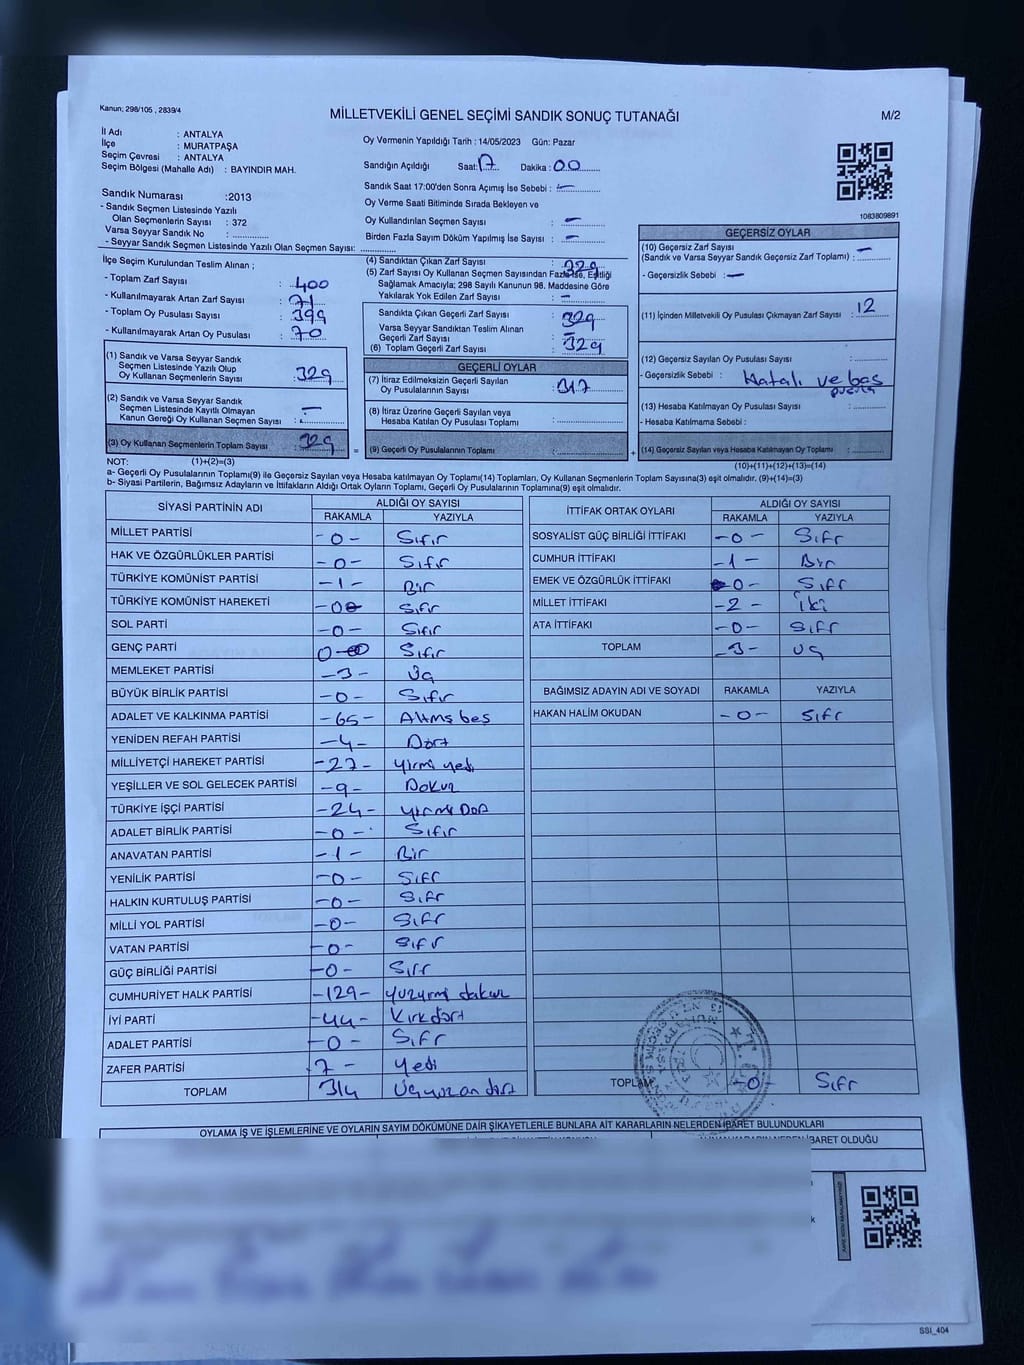 Kanun: 298/105 , 2839/4
MİLLETVEKİLİ GENEL SEÇİMİ SANDIK SONUÇ TUTANAĞI
M/2
İl Adı : ANTALYA
İlçe : MURATPAŞA
Seçim Çevresi : ANTALYA
Seçim Bölgesi (Mahalle Adı) : BAYINDIR MAH.
Sandık Numarası :2013
- Sandık Seçmen Listesinde Yazılı
Olan Seçmenlerin Sayısı : 372
Varsa Seyyar Sandık No : ..............
- Seyyar Sandık Seçmen Listesinde Yazılı Olan Seçmen Sayısı: ..............
Oy Vermenin Yapıldığı Tarih : 14/05/2023 Gün: Pazar
Sandığın Açıldığı Saat: 17 Dakika : 00
Sandık Saat 17:00'den Sonra Açımış İse Sebebi : —
Oy Verme Saati Bitiminde Sırada Bekleyen ve
Oy Kullandırılan Seçmen Sayısı : —
Birden Fazla Sayım Döküm Yapılmış İse Sayısı : —
1083809891
İlçe Seçim Kurulundan Teslim Alınan ;
- Toplam Zarf Sayısı : 400
- Kullanılmayarak Artan Zarf Sayısı : 71
- Toplam Oy Pusulası Sayısı : 399
- Kullanılmayarak Artan Oy Pusulası : 70
(4) Sandıktan Çıkan Zarf Sayısı : 329
(5) Zarf Sayısı Oy Kullanan Seçmen Sayısından Fazla İse, Eşitliği
Sağlamak Amacıyla; 298 Sayılı Kanunun 98. Maddesine Göre
Yakılarak Yok Edilen Zarf Sayısı : —
Sandıkta Çıkan Geçerli Zarf Sayısı : 329
Varsa Seyyar Sandıktan Teslim Alınan
Geçerli Zarf Sayısı : —
(6) Toplam Geçerli Zarf Sayısı : 329
(1) Sandık ve Varsa Seyyar Sandık
Seçmen Listesinde Yazılı Olup
Oy Kullanan Seçmenlerin Sayısı : 329
(2) Sandık ve Varsa Seyyar Sandık
Seçmen Listesinde Kayıtlı Olmayan
Kanun Gereği Oy Kullanan Seçmen Sayısı : —
(3) Oy Kullanan Seçmenlerin Toplam Sayısı : 329
GEÇERLİ OYLAR
(7) İtiraz Edilmeksizin Geçerli Sayılan
Oy Pusulalarının Sayısı : 317
(8) İtiraz Üzerine Geçerli Sayılan veya
Hesaba Katılan Oy Pusulası Toplamı : ..............
= (9) Geçerli Oy Pusulalarının Toplamı : ..............
GEÇERSİZ OYLAR
(10) Geçersiz Zarf Sayısı —
(Sandık ve Varsa Seyyar Sandık Geçersiz Zarf Toplamı) : ..............
- Geçersizlik Sebebi : —
(11) İçinden Milletvekili Oy Pusulası Çıkmayan Zarf Sayısı : 12
(12) Geçersiz Sayılan Oy Pusulası Sayısı : ..............
- Geçersizlik Sebebi : Hatalı ve boş
pusula
(13) Hesaba Katılmayan Oy Pusulası Sayısı : ..............
- Hesaba Katılmama Sebebi :
+ (14) Geçersiz Sayılan veya Hesaba Katılmayan Oy Toplamı : ..............
NOT: (1)+(2)=(3)
(10)+(11)+(12)+(13)=(14)
a- Geçerli Oy Pusulalarının Toplamı(9) ile Geçersiz Sayılan veya Hesaba katılmayan Oy Toplamı(14) Toplamları, Oy Kullanan Seçmenlerin Toplam Sayısına(3) eşit olmalıdır. (9)+(14)=(3)
b- Siyasi Partilerin, Bağımsız Adayların ve İttifakların Aldığı Ortak Oyların Toplamı, Geçerli Oy Pusulalarının Toplamına(9) eşit olmalıdır.
SİYASİ PARTİNİN ADI ALDIĞI OY SAYISI
RAKAMLA YAZIYLA
MİLLET PARTİSİ -0- Sıfır
HAK VE ÖZGÜRLÜKLER PARTİSİ -0- Sıfır
TÜRKİYE KOMÜNİST PARTİSİ -1- Bir
TÜRKİYE KOMÜNİST HAREKETİ -0- Sıfr
SOL PARTİ -0- Sıfır
GENÇ PARTİ 0- Sıfır
MEMLEKET PARTİSİ -3- Üç
BÜYÜK BİRLİK PARTİSİ -0- Sıfır
ADALET VE KALKINMA PARTİSİ -65- Altmş beş
YENİDEN REFAH PARTİSİ -4- Dört
MİLLİYETÇİ HAREKET PARTİSİ -27- yirmi yedi
YEŞİLLER VE SOL GELECEK PARTİSİ -9- Dokuz
TÜRKİYE İŞÇİ PARTİSİ -24- yirmi
ADALET BİRLİK PARTİSİ -0- Sıfır
ANAVATAN PARTİSİ -1- Bir
YENİLİK PARTİSİ -0- Sıfr
HALKIN KURTULUŞ PARTİSİ -0- Sıfr
MİLLİ YOL PARTİSİ -0- Sıfr
VATAN PARTİSİ -0- Sıfr
GÜÇ BİRLİĞİ PARTİSİ -0- Sıfr
CUMHURİYET HALK PARTİSİ -129- yüzyirmi dokuz
İYİ PARTİ -44- Kırkdört
ADALET PARTİSİ -0- Sıfr
ZAFER PARTİSİ 7- Yedi
TOPLAM 314 Üçyüzon dört
İTTİFAK ORTAK OYLARI ALDIĞI OY SAYISI
RAKAMLA YAZIYLA
SOSYALİST GÜÇ BİRLİĞİ İTTİFAKI -0- Sıfr
CUMHUR İTTİFAKI -1- Bir
EMEK VE ÖZGÜRLÜK İTTİFAKI 0- Sıfr
MİLLET İTTİFAKI -2- İki
ATA İTTİFAKI -0- Sıfr
TOPLAM -3- Üç
BAĞIMSIZ ADAYIN ADI VE SOYADI RAKAMLA YAZIYLA
HAKAN HALİM OKUDAN -0- Sıfr
TOPLAM -0- Sıfr
OYLAMA İŞ VE İŞLEMLERİNE VE OYLARIN SAYIM DÖKÜMÜNE DAİR ŞİKAYETLERLE BUNLARA AİT KARARLARIN NELERDEN İBARET BULUNDUKLARI
İBARET OLDUĞU
SSI_404